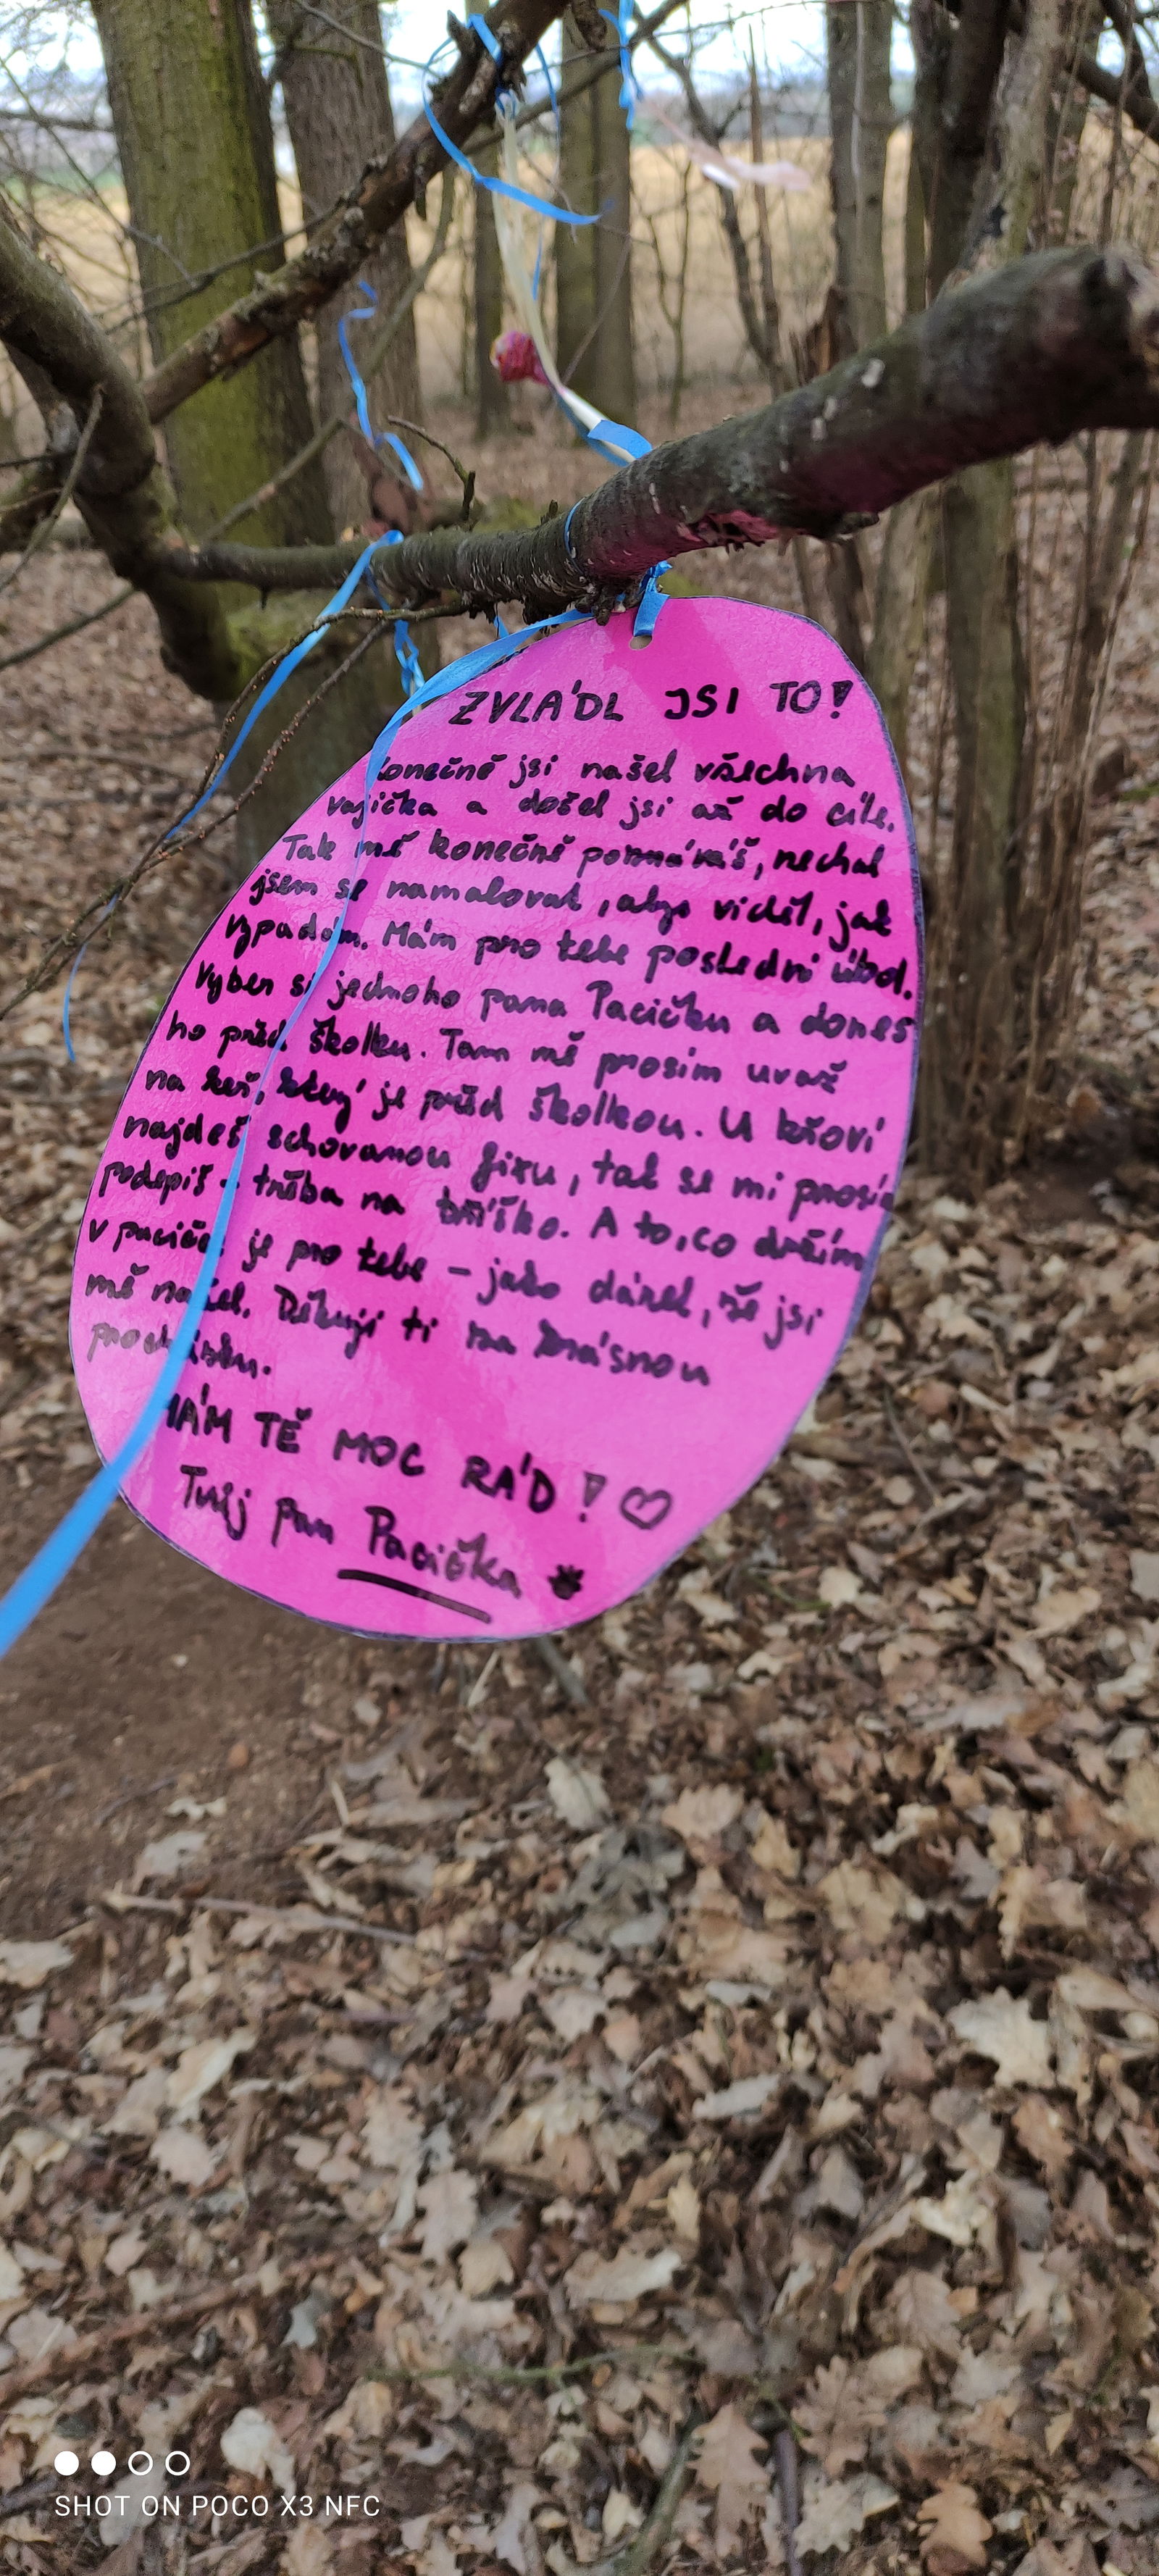 ZVLÁDL JSI TO!
Konečně jsi našel všechna
vajíčka a došel jsi až do cíle.
Tak mě konečně poznáváš, nechal
jsem se namalovat, abys viděl, jak
vypadám. Mám pro tebe poslední úkol.
Vyber si jednoho pana Pacičku a dones
ho před školku. Tam mě prosím uvaž
na keř, který je před školkou. U křoví
najdeš schovanou fixu, tak se mi prosím
podepiš - třeba na bříško. A to, co držím
v pacičce je pro tebe - jako dárek, že jsi
mě našel. Děkuji ti za krásnou
procházku.
MÁM TĚ MOC RÁD! ♡
Tvůj pan Pacička
SHOT ON POCO X3 NFC